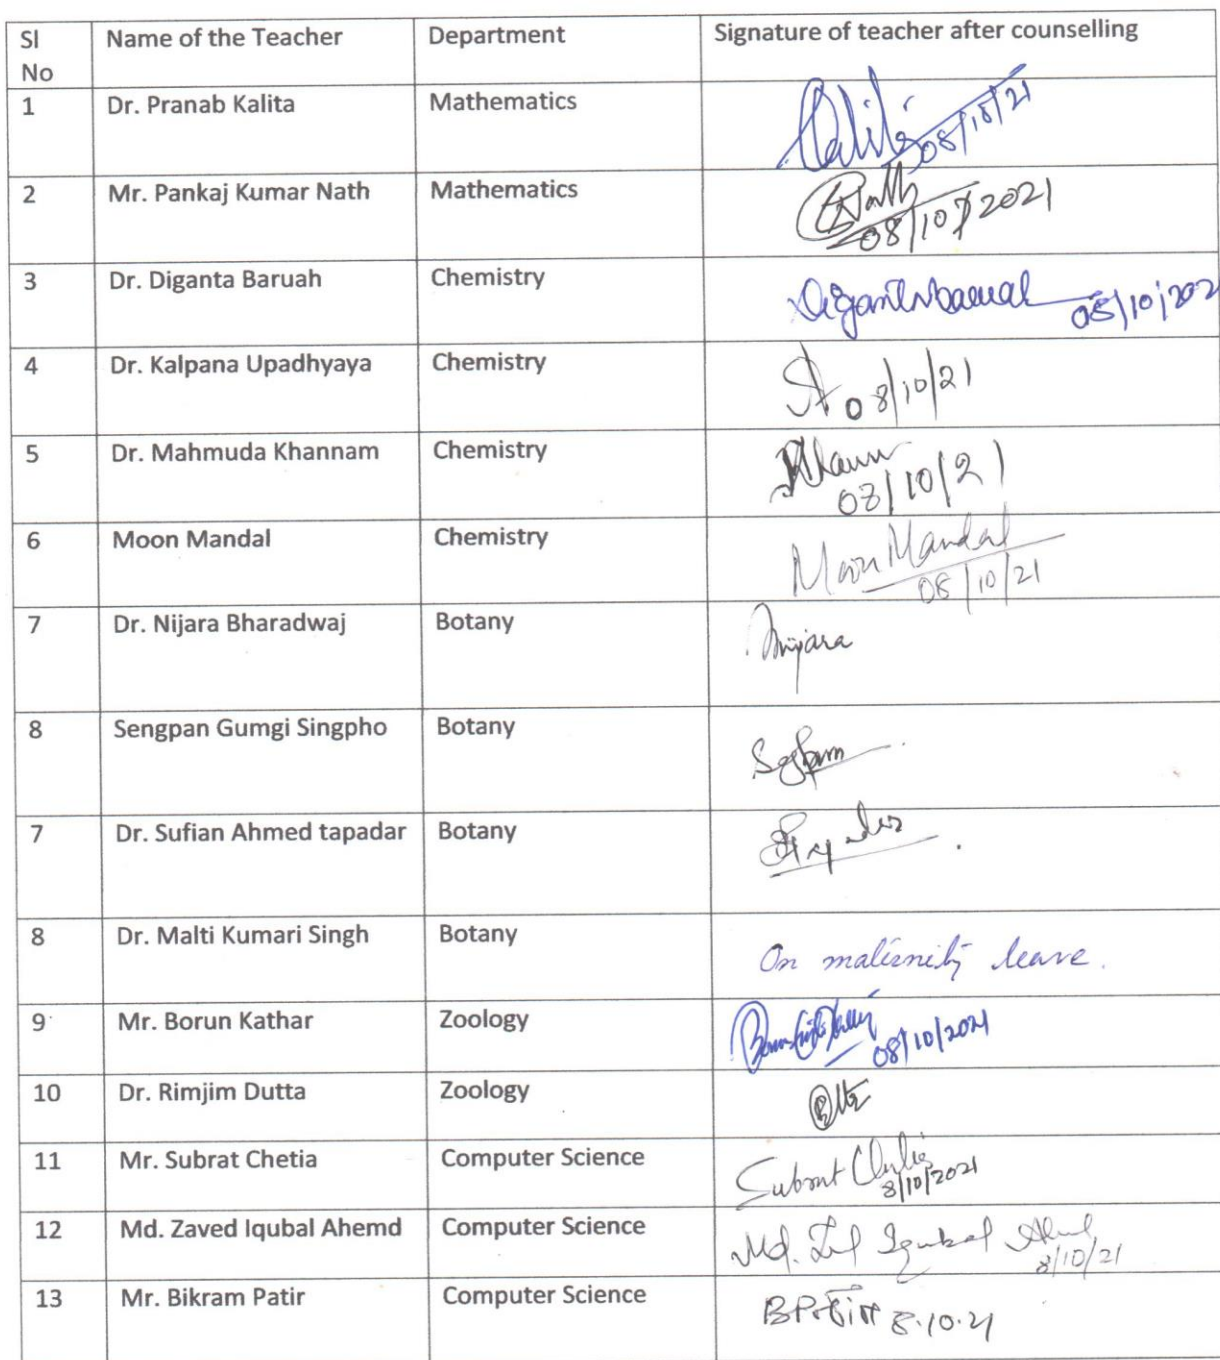 Sl No Name of the Teacher Department Signature of teacher after counselling
1 Dr. Pranab Kalita Mathematics 08/10/21
2 Mr. Pankaj Kumar Nath Mathematics 08/10/2021
3 Dr. Diganta Baruah Chemistry 08/10/202
4 Dr. Kalpana Upadhyaya Chemistry 08/10/21
5 Dr. Mahmuda Khannam Chemistry 08/10/21
6 Moon Mandal Chemistry Moon Mandal 08/10/21
7 Dr. Nijara Bharadwaj Botany Nijara
8 Sengpan Gumgi Singpho Botany
7 Dr. Sufian Ahmed tapadar Botany
8 Dr. Malti Kumari Singh Botany On maternity leave.
9 Mr. Borun Kathar Zoology 08/10/2021
10 Dr. Rimjim Dutta Zoology
11 Mr. Subrat Chetia Computer Science Subrat Chetia 8/10/2021
12 Md. Zaved Iqubal Ahemd Computer Science Md. Iqubal 8/10/21
13 Mr. Bikram Patir Computer Science 8.10.21